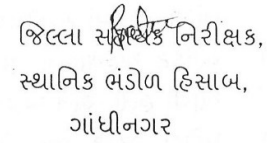 જિલ્લા સહાયક નિરીક્ષક,
સ્થાનિક ભંડોળ હિસાબ,
ગાંધીનગર